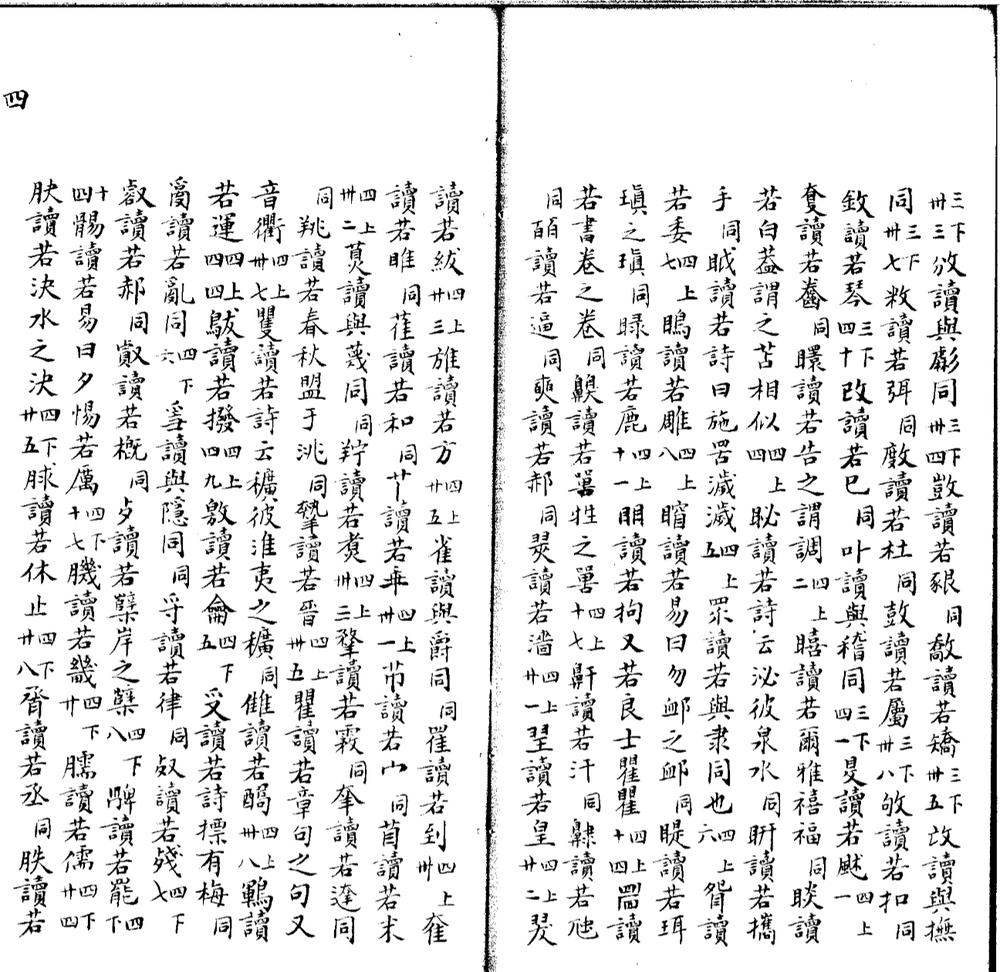 三下卅三攽讀與虨同三下卅四敳讀若豤同敿讀若矯三下卅五𢻬讀與撫
同三下卅七敉讀若弭同㪏讀若杜同㪗讀若屬三下卅八敂讀若扣同
鈙讀若琴三下四十改讀若巳同卟讀與稽同三下四一𥄎讀若䫻四上一
敻讀若齤同矎讀若告之謂調四上二瞦讀若爾雅禧福同睒讀
若白蓋謂之苫相似四上四䀣讀若詩云泌彼泉水同盱讀若攜
手同眓讀若詩曰施罟濊濊四上五眔讀若與隶同也四上六眢讀
若委四上七瞗讀若雕四上八䁌讀若易曰勿卹之卹同睼讀若珥
瑱之瑱同睩讀若鹿四上十一䀠讀若拘又若良士瞿瞿四上十四讀
若書卷之卷同齅讀若嘼牲之嘼四上十七鼾讀若汗同讀若虺
同皕讀若逼同奭讀若郝同翜讀若濇四上廿一翌讀若皇四上廿二翇
讀若紱四上廿三雃讀若方四上廿五雀讀與爵同同讀若到四上卅奞
讀若睢同雈讀若和同𦫳讀若乖四上卅一讀若宀同苜讀若末
四上卅二莧讀與蔑同同羜讀若煮四上卅三讀若霧同羍讀若達同
同讀若春秋盟于洮同讀若晉四上卅五瞿讀若章句之句又
音衢四上卅七矍讀若詩云穬彼淮夷之穬同雔讀若醻四上卅八鶤讀
若運四上四四讀若撥四上四九敫讀若龠四下五受讀若詩摽有梅同
𤔔讀若亂同四下六讀與隱同同寽讀若律同讀若殘四下七
叡讀若郝同讀若概同歺讀若櫱岸之櫱四下八髀讀若罷四下
十四讀若易曰夕惕若厲四下十七讀若畿四下廿臑讀若儒四下廿四
肤讀若決水之決四下廿五脙讀若休止四下廿八脀讀若丞同胅讀若
四